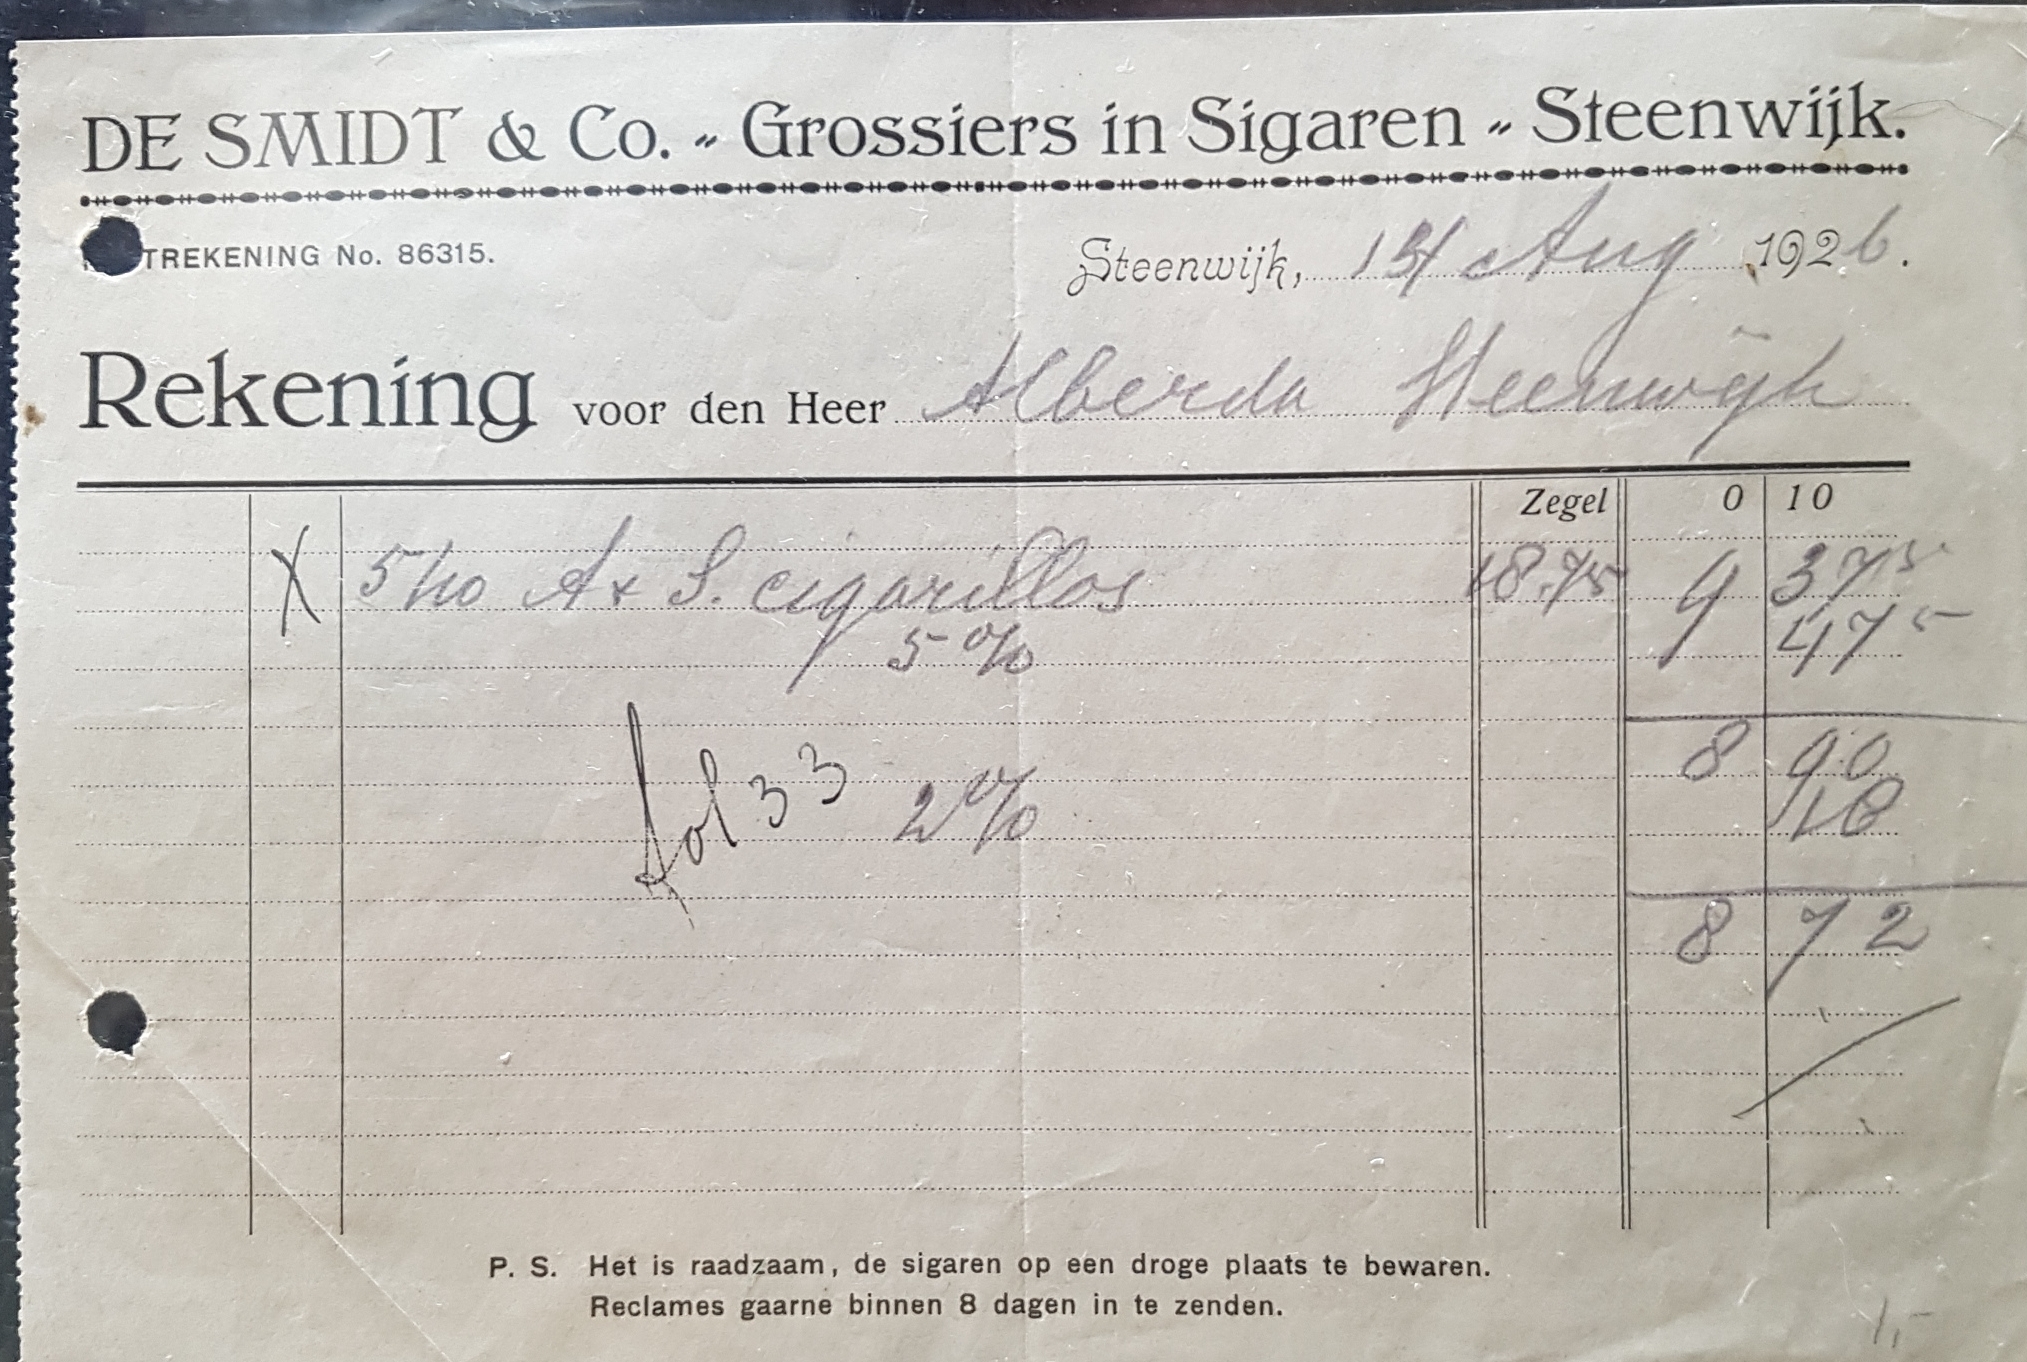 DE SMIDT & Co. „ Grossiers in Sigaren „ Steenwijk.
TREKENING No. 86315.
Steenwijk, Aug 1926.
Rekening voor den Heer Alberda Steenwijk
Zegel 0 10
X 5/10 A & S. cigarillos 18.75 9 375
5 % 475
8 90
fol 33 2 % 18
8 72
P. S. Het is raadzaam, de sigaren op een droge plaats te bewaren.
Reclames gaarne binnen 8 dagen in te zenden.
1,-